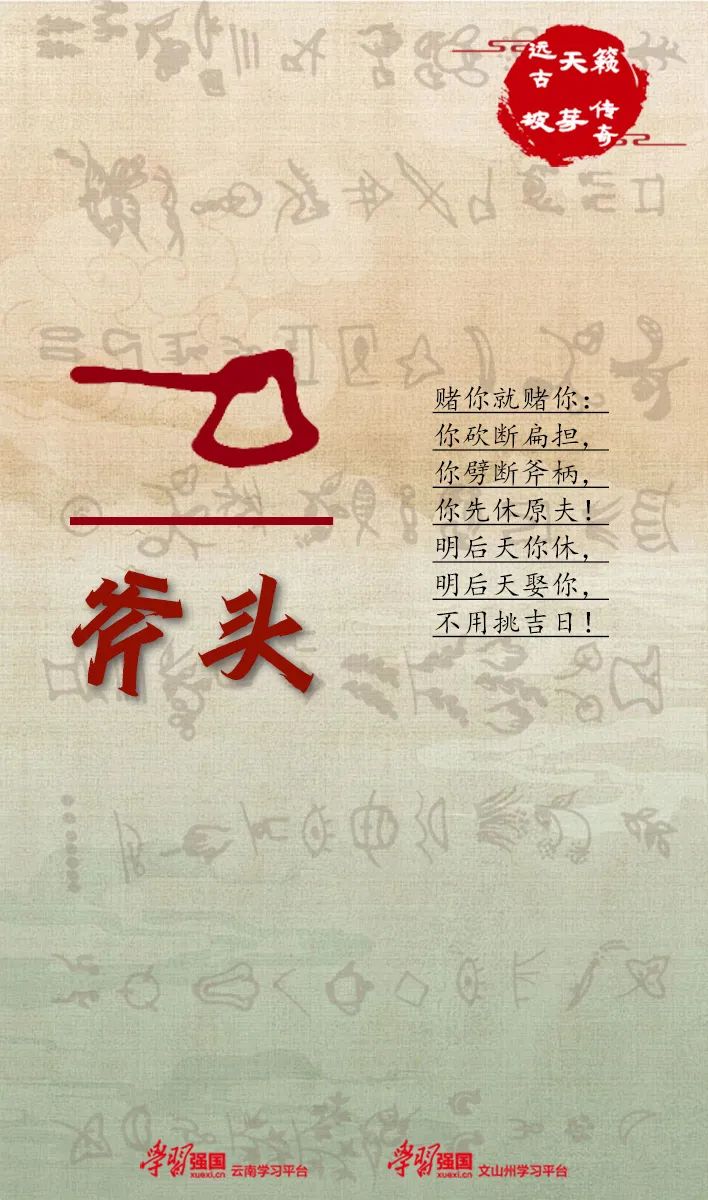 远古 天籁
坡芽 传奇
斧头
赌你就赌你：
你砍断扁担，
你劈断斧柄，
你先休原夫！
明后天你休，
明后天娶你，
不用挑吉日！
学习强国 xuexi.cn 云南学习平台
学习强国 xuexi.cn 文山州学习平台